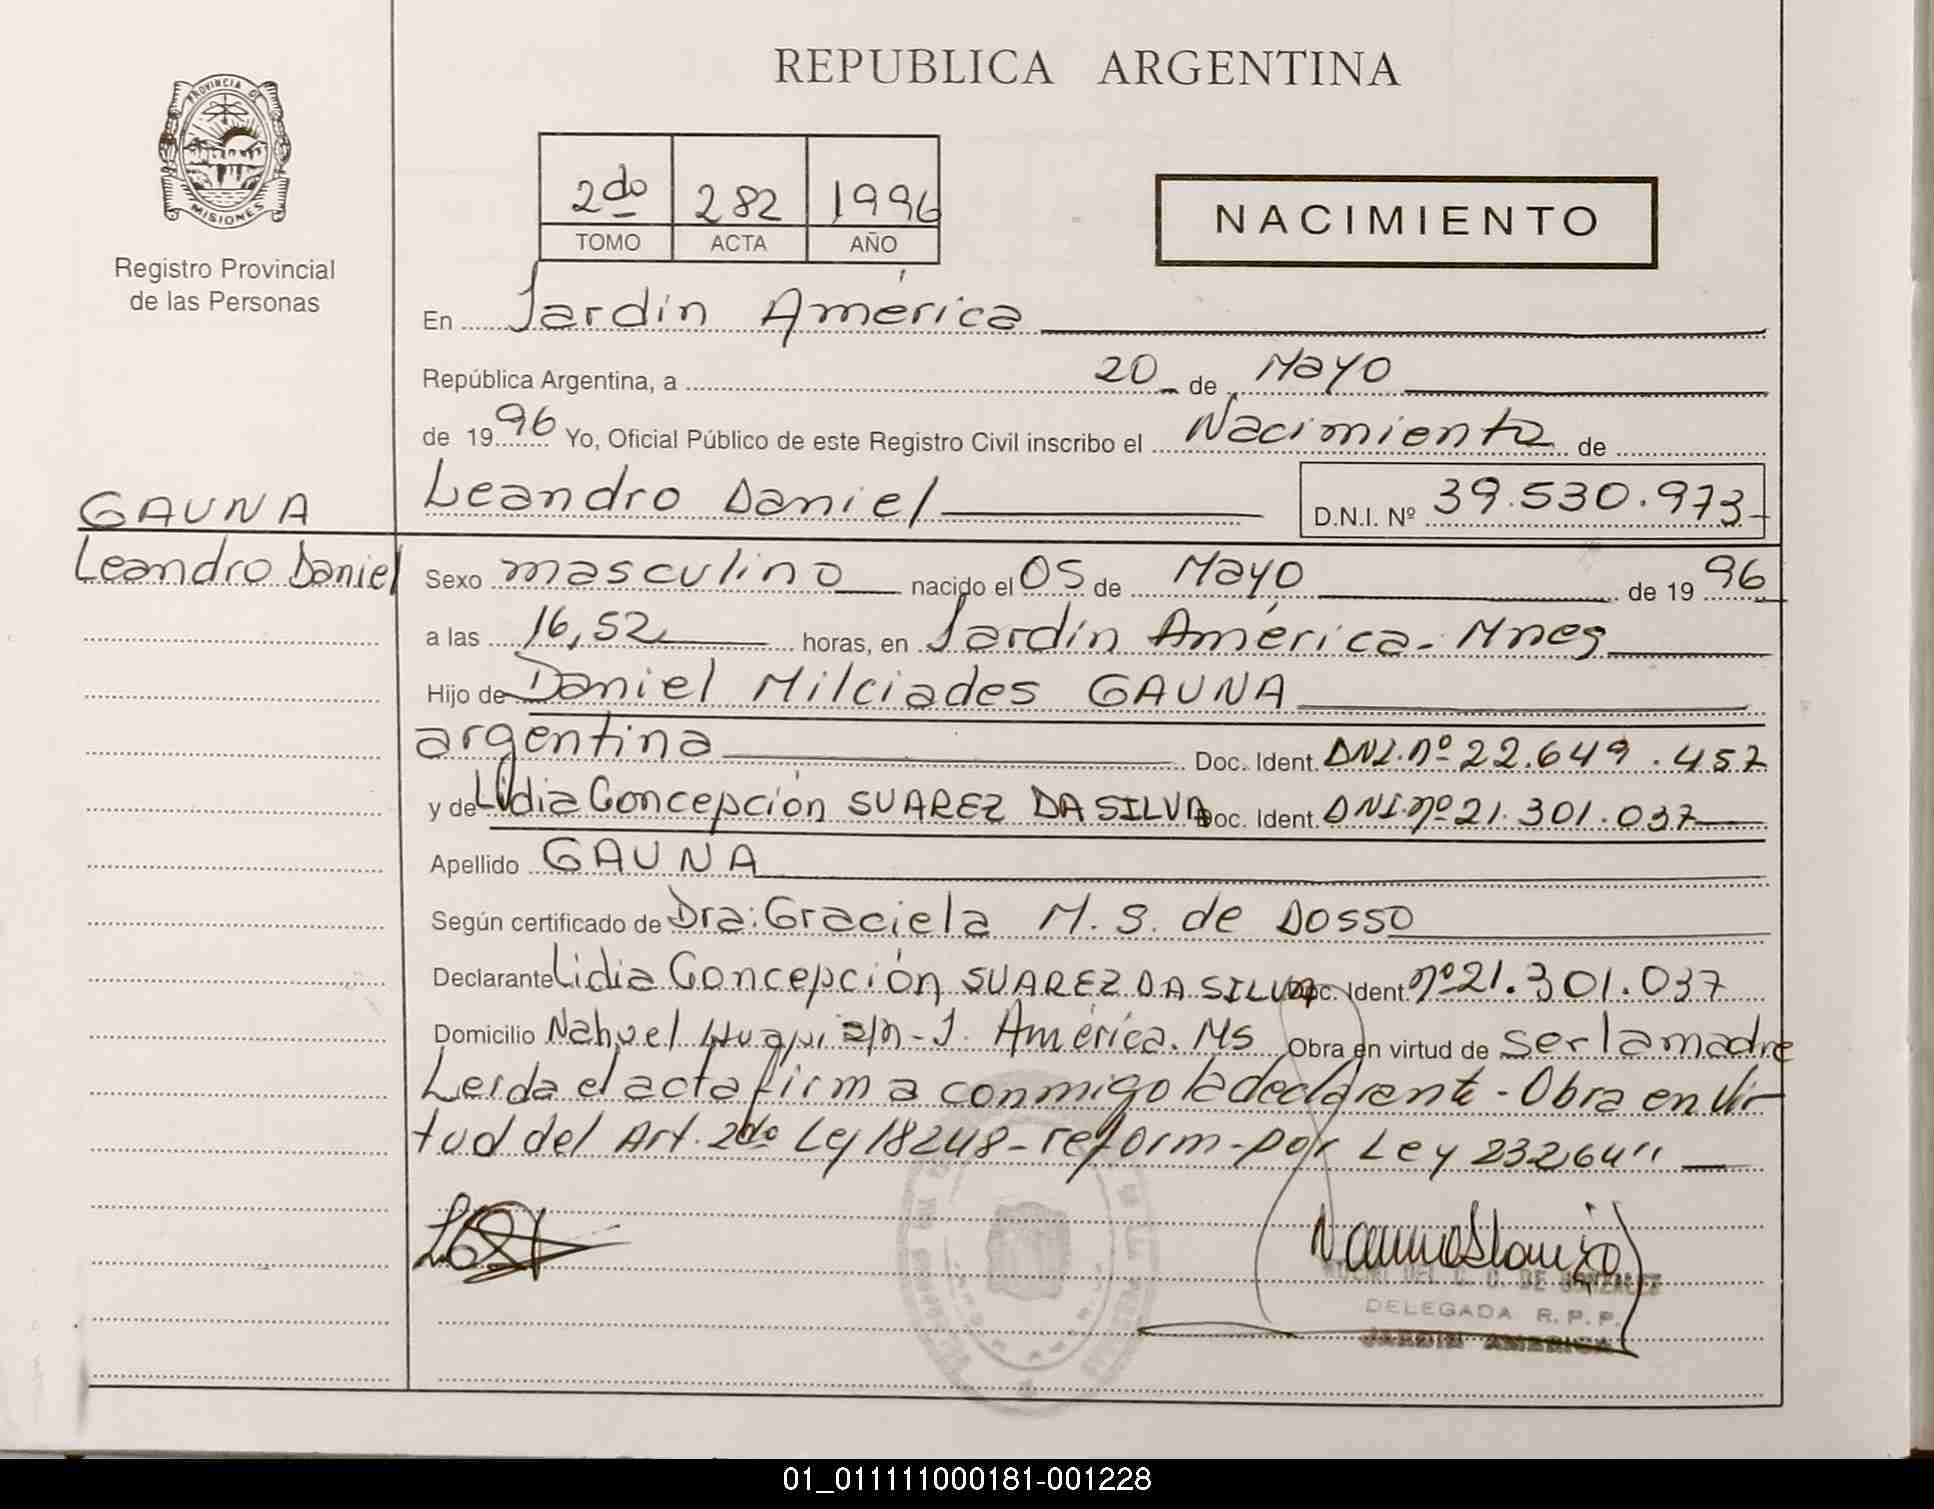 REPUBLICA ARGENTINA
PROVINCIA DE
MISIONES
Registro Provincial
de las Personas
2do 282 1996
TOMO ACTA AÑO
NACIMIENTO
En Jardín América
República Argentina, a 20 de Mayo
de 1996 Yo, Oficial Público de este Registro Civil inscribo el Nacimiento de
Leandro Daniel D.N.I. Nº 39.530.973
GAUNA
Leandro Daniel
Sexo masculino nacido el 05 de Mayo de 1996
a las 16,52 horas, en Jardín América - Mnes
Hijo de Daniel Milciades GAUNA
argentina Doc. Ident. DNI. nº 22.649.457
y de Lidia Concepción SUAREZ DA SILVA Doc. Ident. DNI. nº 21.301.037
Apellido GAUNA
Según certificado de Dra: Graciela M. S. de Dosso
Declarante Lidia Concepción SUAREZ DA SILVA Doc. Ident. nº 21.301.037
Domicilio Nahuel Huapi s/n - J. América. Ms Obra en virtud de ser la madre
Leída el acta firma conmigo la declarante - Obra en vir-
tud del Art. 2do Ley 18248 - reform - por Ley 23264"
DE GONZALEZ
DELEGADA R.P.P.
JARDIN AMERICA
01_011111000181-001228